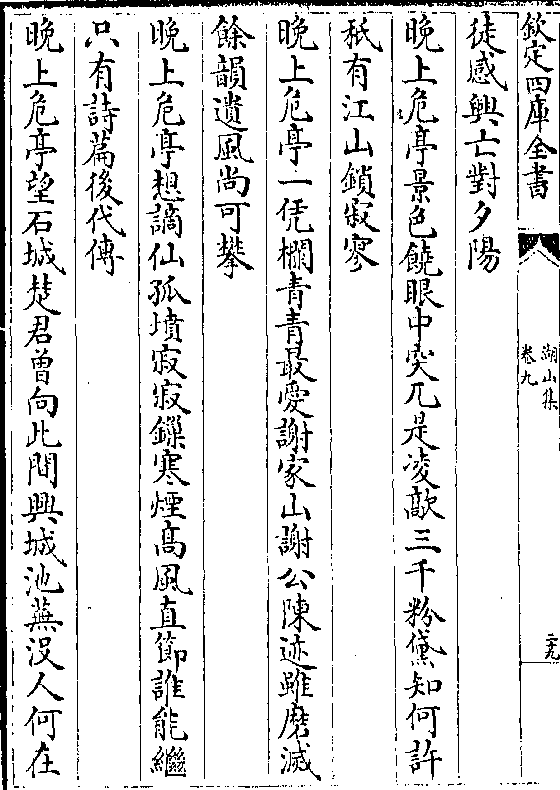 欽定四庫全書
湖山集
卷九
二九
徒感興亡對夕陽
晚上危亭景色饒眼中突兀是凌歊三千粉黛知何許
秪有江山鎖寂寥
晚上危亭一凭欄青青最愛謝家山謝公陳迹雖磨滅
餘韻遺風尚可攀
晚上危亭想謫仙孤墳寂寂鏁寒煙髙風直節誰能繼
只有詩篇後代傳
晚上危亭望石城楚君曾向此間興城池蕪没人何在